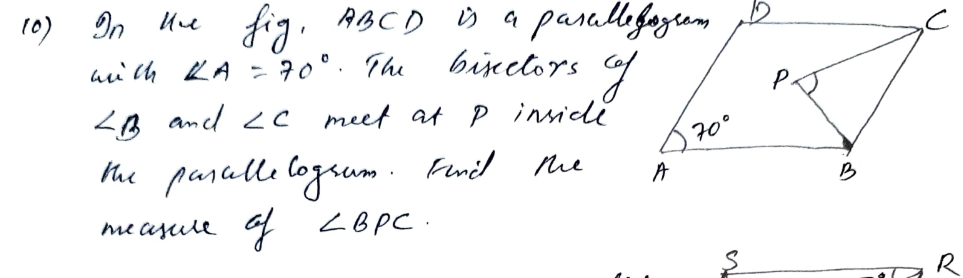 10) In the fig, ABCD is a parallelogram
with ∠A = 70°. The bisectors of
∠B and ∠C meet at P inside
the parallelogram. Find the
measure of ∠BPC.
D
C
P
70°
A
B
S
R